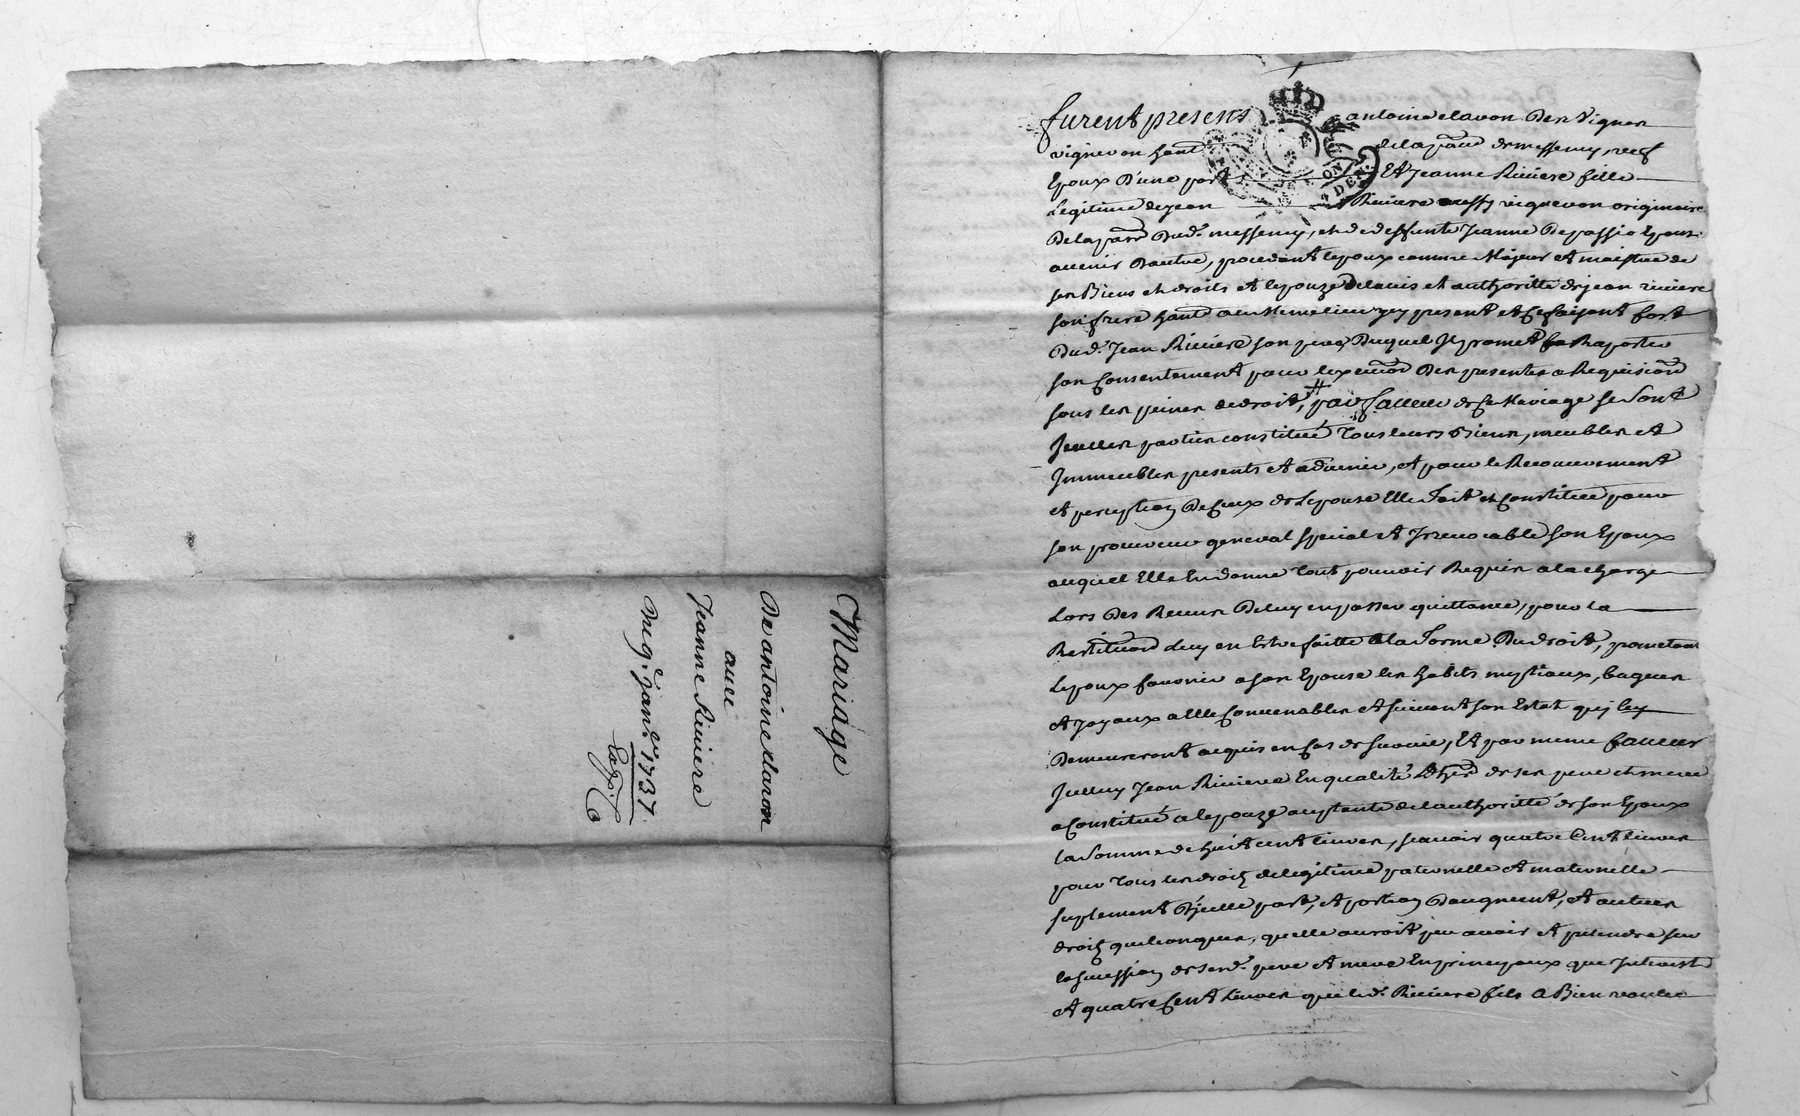 Mariage
De antoine clavon
avec
Jeanne Riviere
Du 9e janer 1737
furent presens antoine clavon Des Vignes
vigneron hant de la parre de messemy, veuf
Epoux D'une part Et Jeanne Riviere fille
Legitime de jean Riviere aussy vigneron originaire
De la parre Dud. messemy, et de deffunte Jeanne Depassio Epouse
avenir Dautre, procedant lepoux comme Majeur et maistre de
ses Biens et droits et lepouze De lavis et authoritté de jean riviere
son frere hant au Meme lieu icy present et se faisant fort
Dud. Jean Riviere son pere, Duquel Il promet Raporter
son Consentement pour lexeon Des presentes a Requision
sous les peines de droit, par faveur de Ce Mariage se sont
Icelles parties constitué Tous leurs Biens, meubles et
Immeubles presents et advenir, et pour le Recouvrement
et perception De Ceux de Lepouse Elle fait et Constitue pour
son procureur general special et Irrevocable son Epoux
auquel Elle En donne Tout pouvoir Requis a la charge
Lors Des Receus De luy en passer quittance, pour la
Restituon luy en Estre faitte a la forme Du droit, prometant
Lepoux fournir a son Epouse les habits nuptiaux, bagues
et Joyaux a Elle Convenables et suivant son Estat qui luy
Demeureront acquis en Cas de survie, Et par meme faveur
Icelluy Jean Riviere En qualité Dher de ses pere et mere
a Constitué a lepouze acceptante de lauthoritté de son Epoux
la Somme de huit cent livres, scavoir quatre Cent livres
pour Tous les droits de legitime paternelle et maternelle
suplement D'icelle part, et portion Daugment, et autres
droits quelconques, quelle auroit peu avoir et pretendre sur
la succession de sesd. pere et mere En principaux que Interest
et quatre Cent livres que led. Riviere fils a Bien voulu